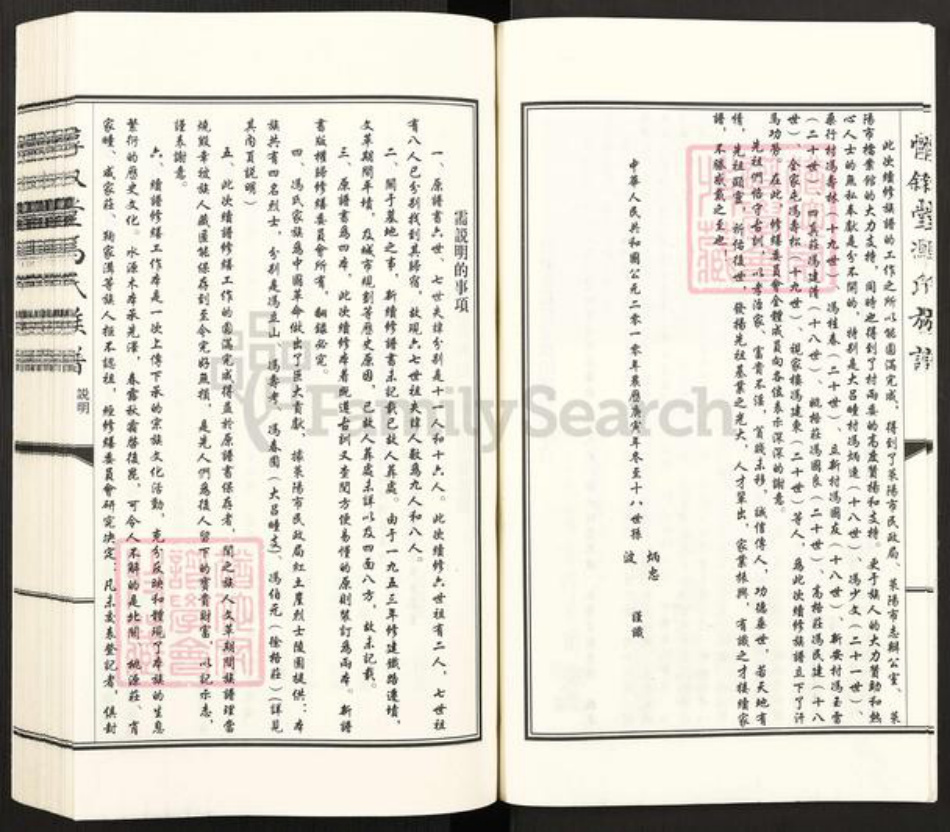 此次續修族譜的工作之所以能圓滿完成，得到了萊陽市民政局、萊陽市志辦公室、萊
陽市檔案館的大力支持，同時也得到了村兩委的高度贊揚和支持。更于族人的大力贊助和熱
心人士的無私奉獻是分不開的，特别是大吕疃村馮炳進（十八世）、馮少文（二十一世）、
桑行村馮壽林（十九世）、馮桂春（二十世）、立新村馮國友（十八世）、新安村馮玉雷
（二十世）、四真莊馮建清（十八世）、姚格莊馮國良（二十世）、高格莊馮民建（十八
世）、全家屯馮壽松（十九世）、視家樓馮建東（二十世）等人，爲此次續修族譜立下了汗
馬功勞，在此，修繕委員會全體成員向各值表示深深的謝意。
先祖們恪守古訓，以孝治家，富貴不淫，貧賤未移，誠信傳人，功德桑世，若天地有
情，先祖顯靈，祈佑後世，發揚先祖基業之光大，人才輩出，家業振興，有識之才接續家
譜，不勝感戴之至也！
中華人民共和國公元二零一零年農歷庚寅年冬至十八世孫
炳忠
波
謹識
需説明的事項
一、原譜書六世、七世夫諱分别是十一人和十六人。此次續修六世祖有二人，七世祖
有八人已分别找到其歸宿，故現六七世祖夫諱人數爲九人和八人。
二、關于墓地之事，新續修譜書未記載已故人葬處。由于一九五三年修建鐵路遷墳，
文革期間平墳，及城市規劃等歷史原因，已故人葬處未詳以及四面八方，故未記載。
三、原譜書爲四本，此次續修本着既遵古訓又查閱方便易懂的原則裝訂爲兩本。新譜
書版權歸修繕委員會所有，翻録必究。
四、馮氏家族爲中國革命做出了巨大貢獻，據萊陽市民政局紅土崖烈士陵園提供：本
族共有四名烈士，分别是馮丘山、馮壽考、馮春園（大吕疃支）、馮伯元（徐格莊）（詳見
其内頁説明）
五、此次續譜修繕工作的圓滿完成得益於原譜書保存者，聞之族人文革期間族譜理當
燒毁幸被族人藏匿能保存到至今完好無損，是先人們爲後人留下的寶貴財富，以記示志，
謹表謝意。
六、續譜修繕工作本是一次上傳下承的宗族文化活動，充分反映和體現了本族的生息
繁衍的歷史文化。水源木本承先澤，春露秋霜啓後昆，可令人不解的是北關、桃源莊、宵
家疃、戚家莊、鞠家溝等族人拒不認祖，經修繕委員會研究決定：凡未交表登記者，俱封
説明
FamilySearch